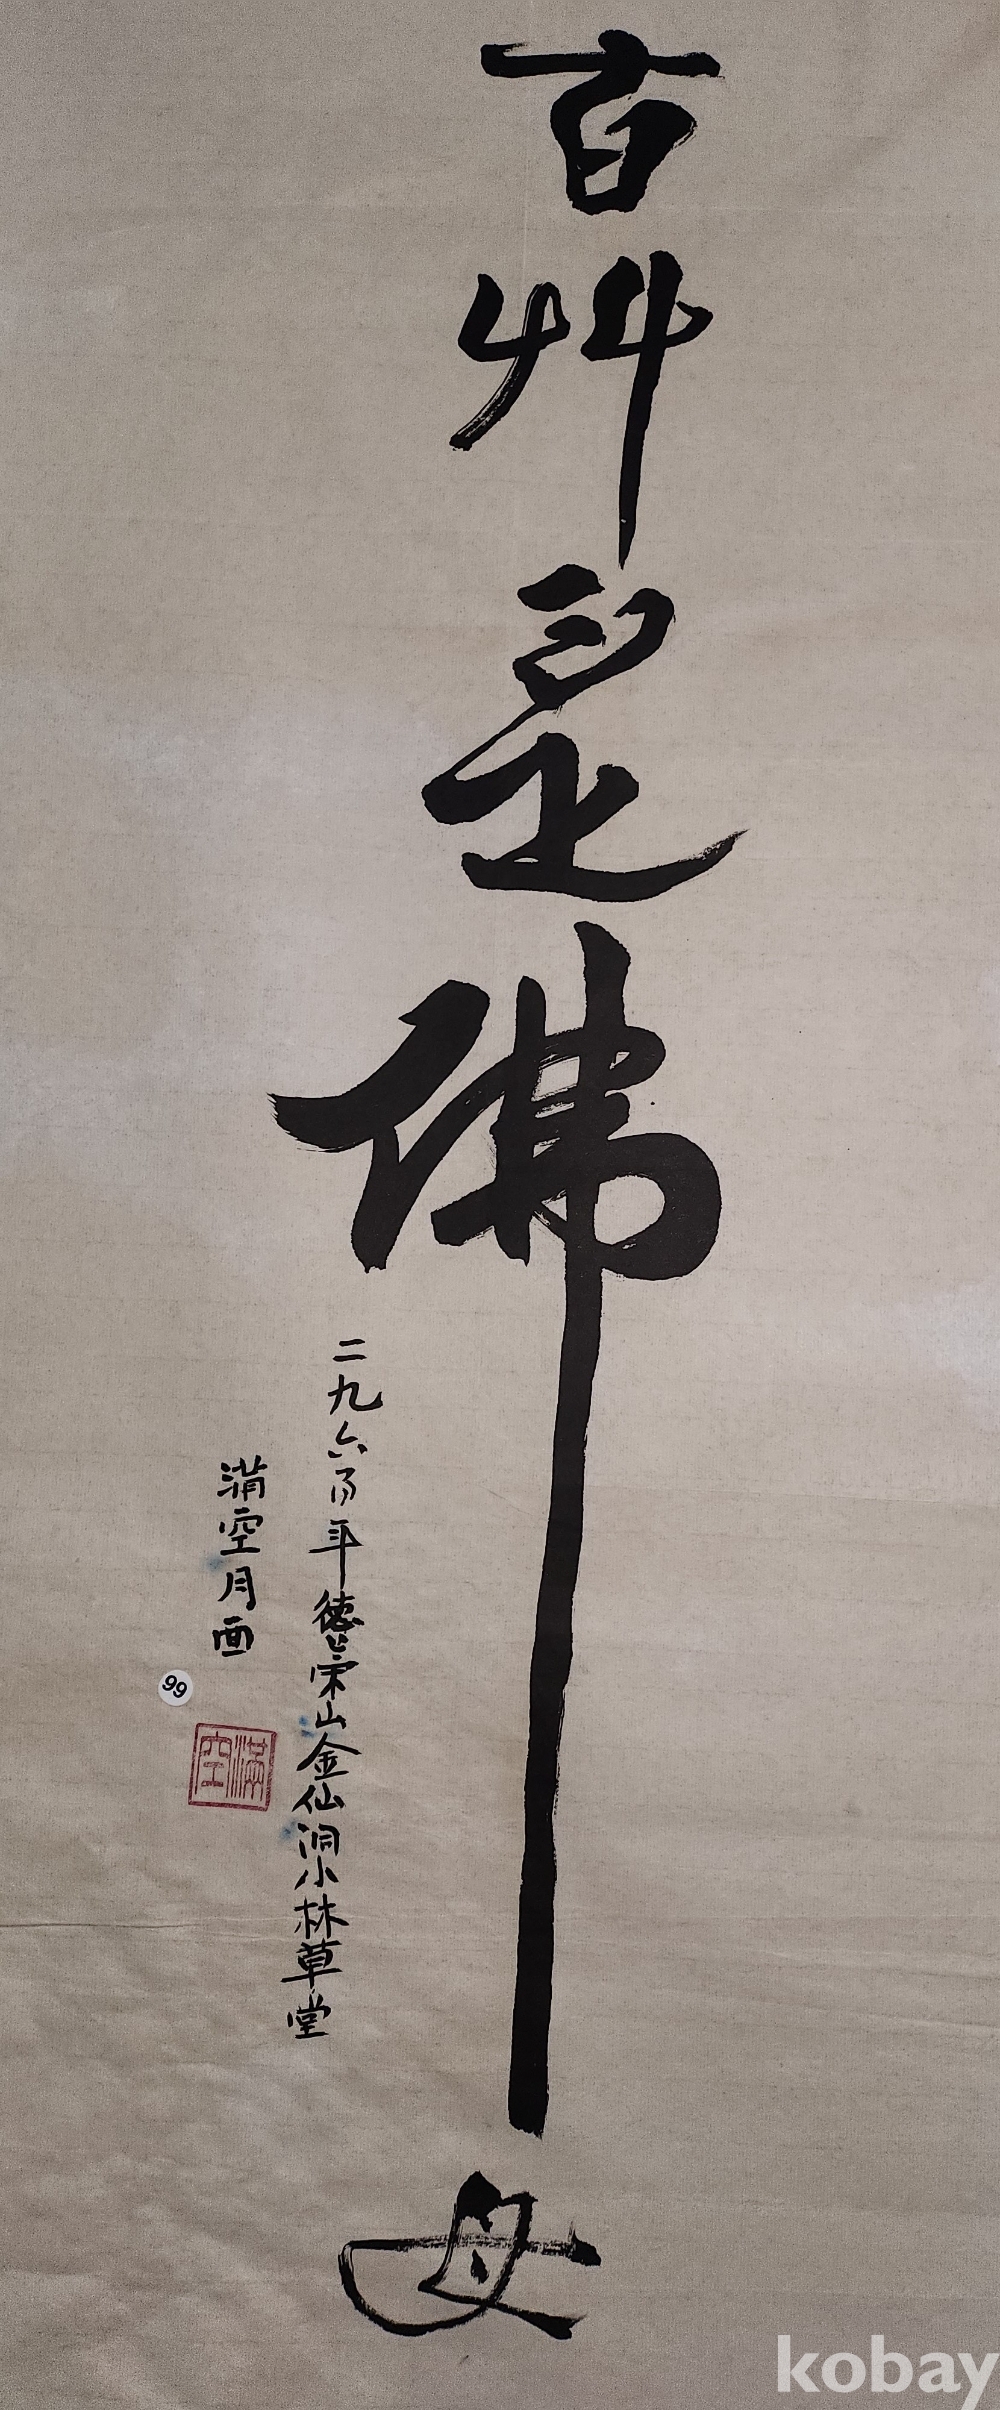 百艸是佛母
二九六了年德崇山金仙洞小林草堂
满空月面
99
滿空
kobay